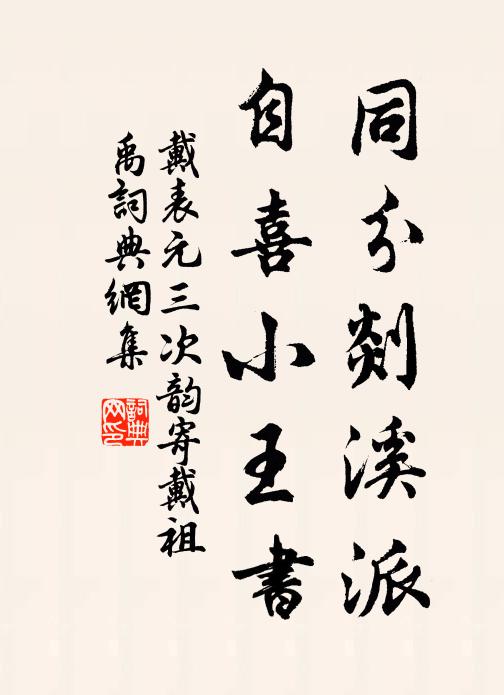 同分剡溪派
自喜小王書
戴表元三次韵寄戴祖
禹詞典網集
詞典网印